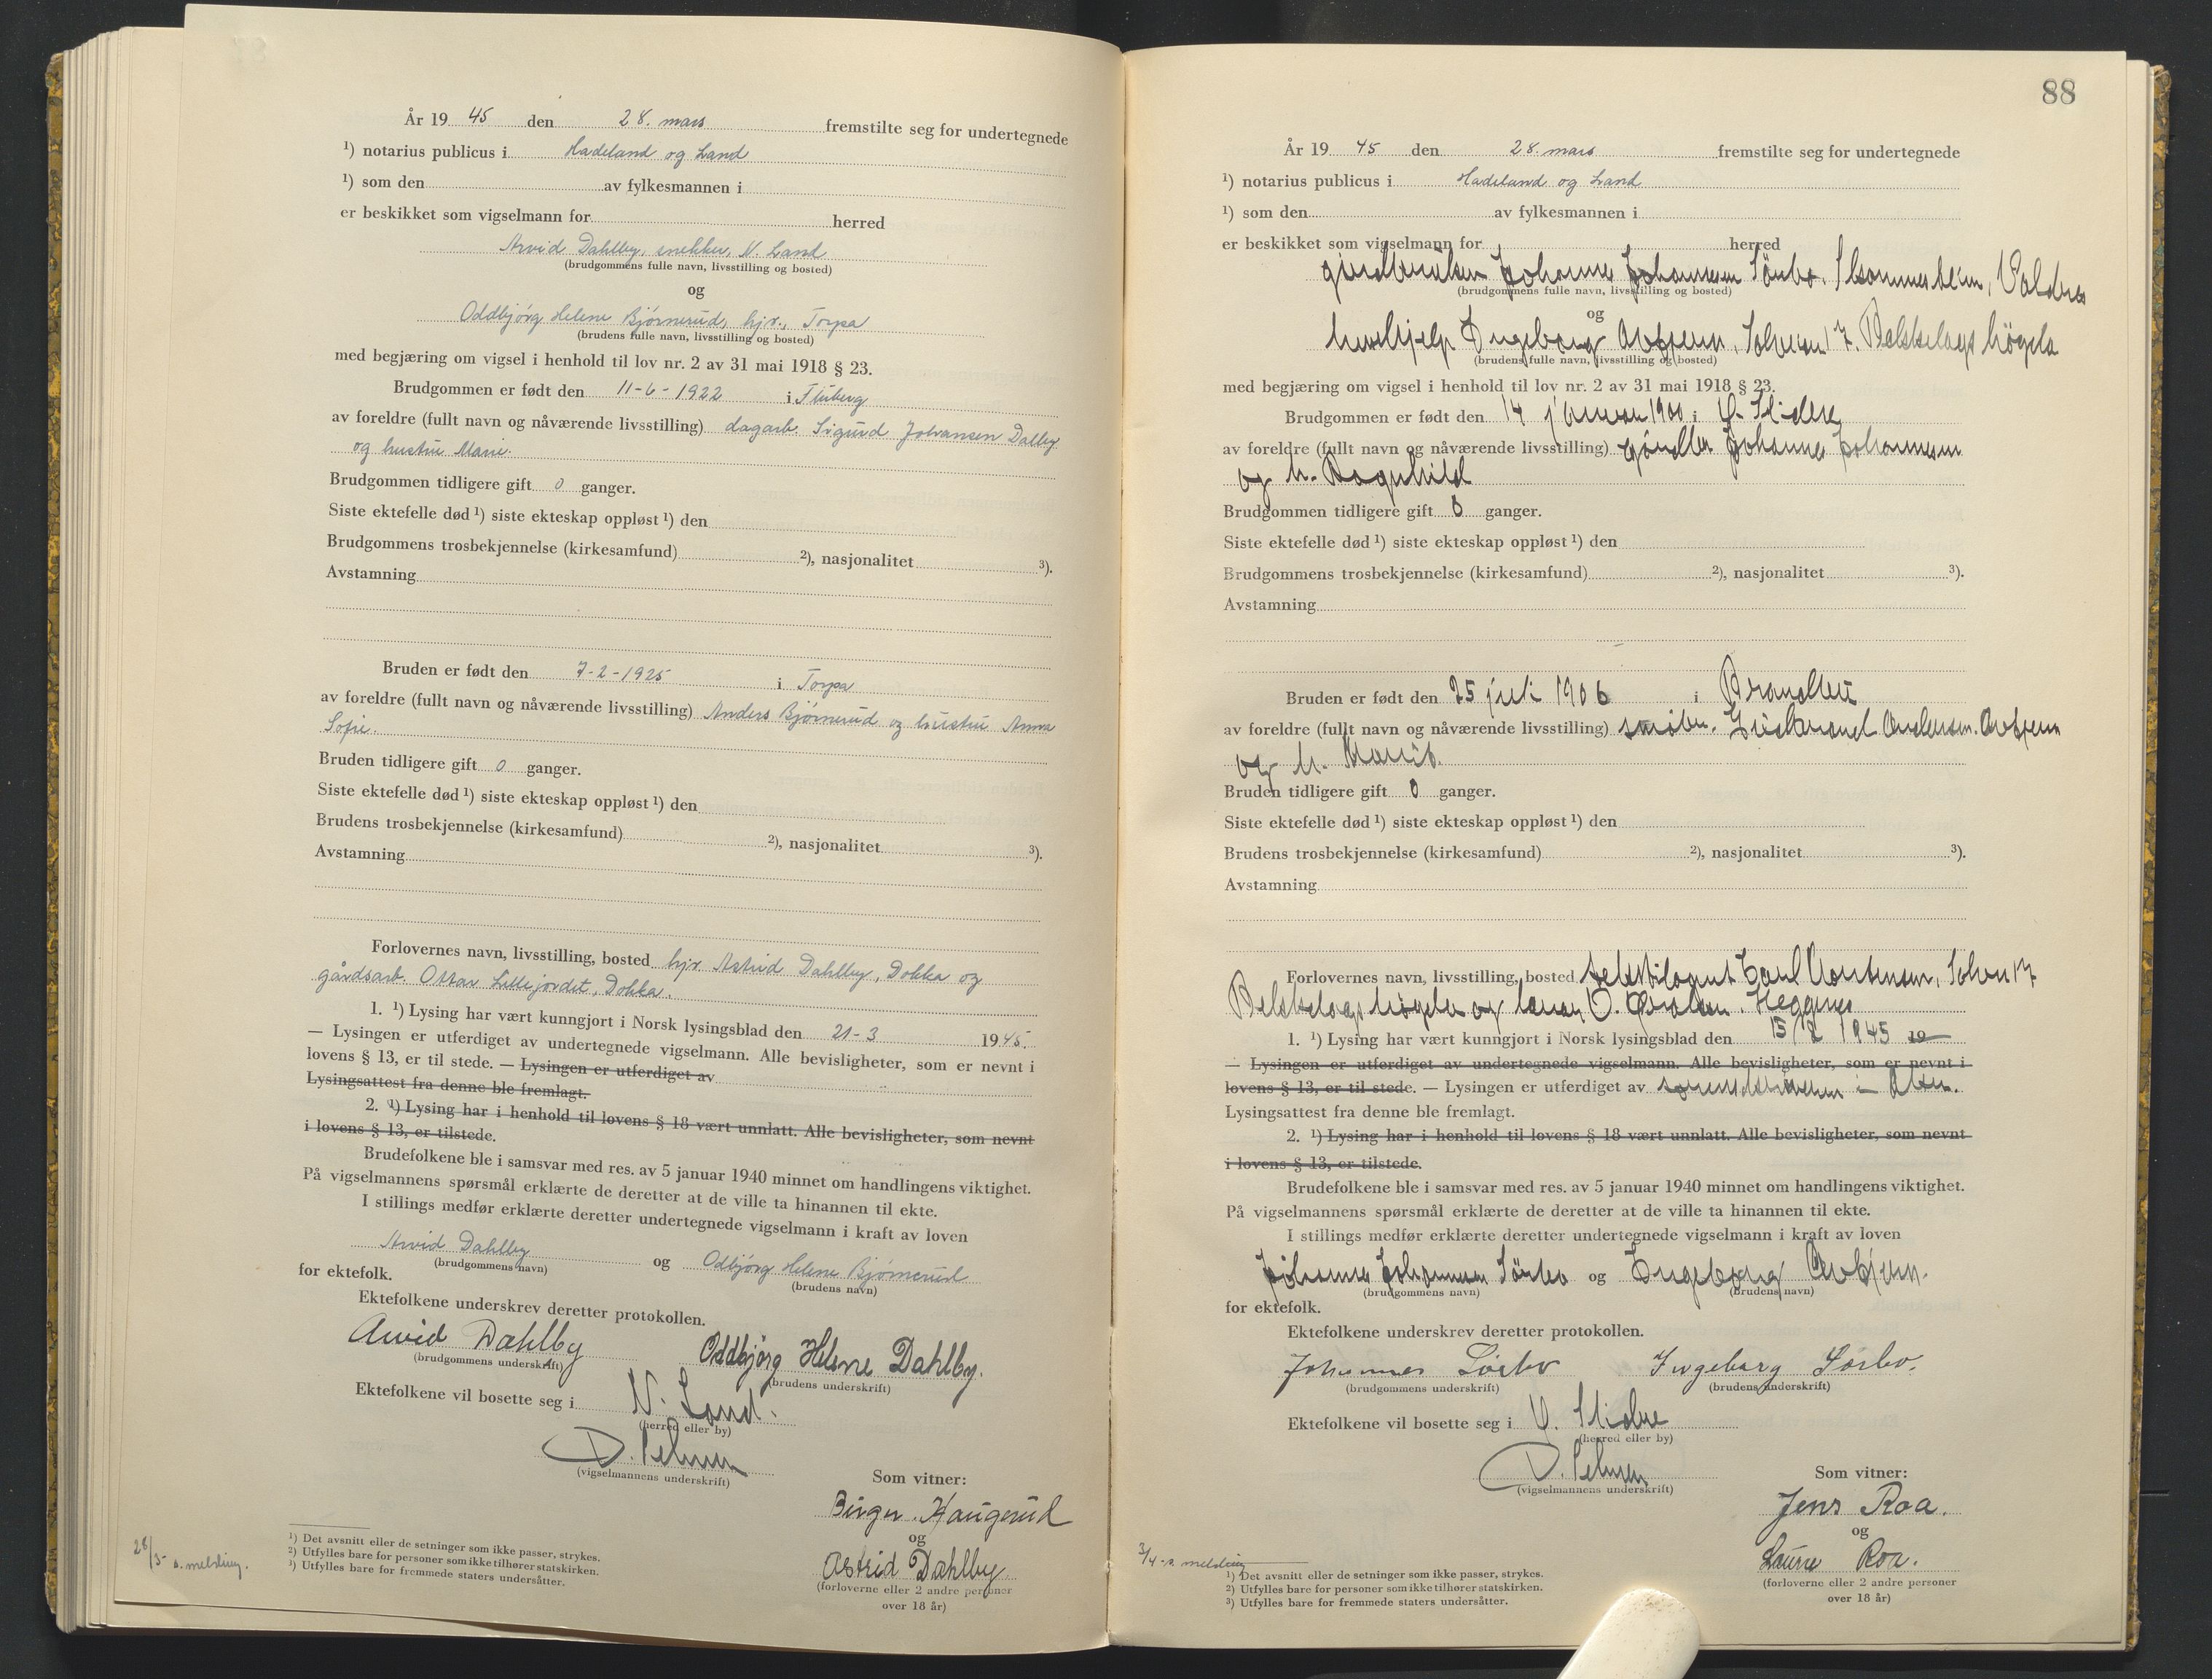 År 19 45 den 28. mars fremstilte seg for undertegnede
¹) notarius publicus i Hadeland og Land
¹) som den av fylkesmannen i
er beskikket som vigselmann for herred
Arvid Dahlby, snekker, N. Land
(brudgommens fulle navn, livsstilling og bosted)
og
Oddbjørg Helene Bjørnerud, hjv., Torpa
(brudens fulle navn, livsstilling og bosted)
med begjæring om vigsel i henhold til lov nr. 2 av 31 mai 1918 § 23.
Brudgommen er født den 11-6-1922 i Fluberg
av foreldre (fullt navn og nåværende livsstilling) dagarb. Sigurd Johansen Dalby
og hustru Marie.
Brudgommen tidligere gift 0 ganger.
Siste ektefelle død ¹) siste ekteskap oppløst ¹) den
Brudgommens trosbekjennelse (kirkesamfund) ²), nasjonalitet ³).
Avstamning
Bruden er født den 7-2-1925 i Torpa
av foreldre (fullt navn og nåværende livsstilling) Anders Bjørnerud og hustru Anna
Sofie.
Bruden tidligere gift 0 ganger.
Siste ektefelle død ¹) siste ekteskap oppløst ¹) den
Brudens trosbekjennelse (kirkesamfund) ²), nasjonalitet ³).
Avstamning
Forlovernes navn, livsstilling, bosted hjv. Astrid Dahlby, Dokka og
gårdsarb. Ottar Lillejordet, Dokka.
1. ¹) Lysing har vært kunngjort i Norsk lysingsblad den 21-3 1945.
— Lysingen er utferdiget av undertegnede vigselmann. Alle bevisligheter, som er nevnt i
lovens § 13, er til stede. — Lysingen er utferdiget av
Lysingsattest fra denne ble fremlagt.
2. ¹) Lysing har i henhold til lovens § 18 vært unnlatt. Alle bevisligheter, som nevnt
i lovens § 13, er tilstede.
Brudefolkene ble i samsvar med res. av 5 januar 1940 minnet om handlingens viktighet.
På vigselmannens spørsmål erklærte de deretter at de ville ta hinannen til ekte.
I stillings medfør erklærte deretter undertegnede vigselmann i kraft av loven
Arvid Dahlby og Odbjörg Helene Bjørnerud
(brudgommens navn) (brudens navn)
for ektefolk.
Ektefolkene underskrev deretter protokollen.
Arvid Dahlby Oddbjørg Helene Dahlby.
(brudgommens underskrift) (brudens underskrift)
Ektefolkene vil bosette seg i N. Land.
(herred eller by)
(vigselmannens underskrift)
Som vitner:
Birger Haugerud
og
Astrid Dahlby
(forloverne eller 2 andre personer
over 18 år)
28/3- s. melding.
¹) Det avsnitt eller de setninger som ikke passer, strykes.
²) Utfylles bare for personer som ikke tilhører statskirken.
³) Utfylles bare for fremmede staters undersåtter.
88
År 19 45 den 28. mars fremstilte seg for undertegnede
¹) notarius publicus i Hadeland og Land
¹) som den av fylkesmannen i
er beskikket som vigselmann for herred
Johannes Johannesen Sörbo, Valdres
(brudgommens fulle navn, livsstilling og bosted)
og
hushjelp Ingeborg
(brudens fulle navn, livsstilling og bosted)
med begjæring om vigsel i henhold til lov nr. 2 av 31 mai 1918 § 23.
Brudgommen er født den 14 januar 1900 i Ø. Slidre
av foreldre (fullt navn og nåværende livsstilling) Johannes Johannesen
og h. Ragnhild
Brudgommen tidligere gift 0 ganger.
Siste ektefelle død ¹) siste ekteskap oppløst ¹) den
Brudgommens trosbekjennelse (kirkesamfund) ²), nasjonalitet ³).
Avstamning
Bruden er født den 25 juli 1906 i Brandbu
av foreldre (fullt navn og nåværende livsstilling) småbr. Gudbrand Andersen
og h.
Bruden tidligere gift 0 ganger.
Siste ektefelle død ¹) siste ekteskap oppløst ¹) den
Brudens trosbekjennelse (kirkesamfund) ²), nasjonalitet ³).
Avstamning
Forlovernes navn, livsstilling, bosted
og Heggenes
1. ¹) Lysing har vært kunngjort i Norsk lysingsblad den 15/2 1945 19
— Lysingen er utferdiget av undertegnede vigselmann. Alle bevisligheter, som er nevnt i
lovens § 13, er til stede. — Lysingen er utferdiget av sorenskriveren i
Lysingsattest fra denne ble fremlagt.
2. ¹) Lysing har i henhold til lovens § 18 vært unnlatt. Alle bevisligheter, som nevnt
i lovens § 13, er tilstede.
Brudefolkene ble i samsvar med res. av 5 januar 1940 minnet om handlingens viktighet.
På vigselmannens spørsmål erklærte de deretter at de ville ta hinannen til ekte.
I stillings medfør erklærte deretter undertegnede vigselmann i kraft av loven
Johannes Johannesen Sörbo og Ingeborg
(brudgommens navn) (brudens navn)
for ektefolk.
Ektefolkene underskrev deretter protokollen.
Johannes Sörbo Ingeborg Sörbo.
(brudgommens underskrift) (brudens underskrift)
Ektefolkene vil bosette seg i Ø. Slidre
(herred eller by)
(vigselmannens underskrift)
Som vitner:
Jens Roa.
og
Laura Roa.
(forloverne eller 2 andre personer
over 18 år)
3/4 - s. melding
¹) Det avsnitt eller de setninger som ikke passer, strykes.
²) Utfylles bare for personer som ikke tilhører statskirken.
³) Utfylles bare for fremmede staters undersåtter.